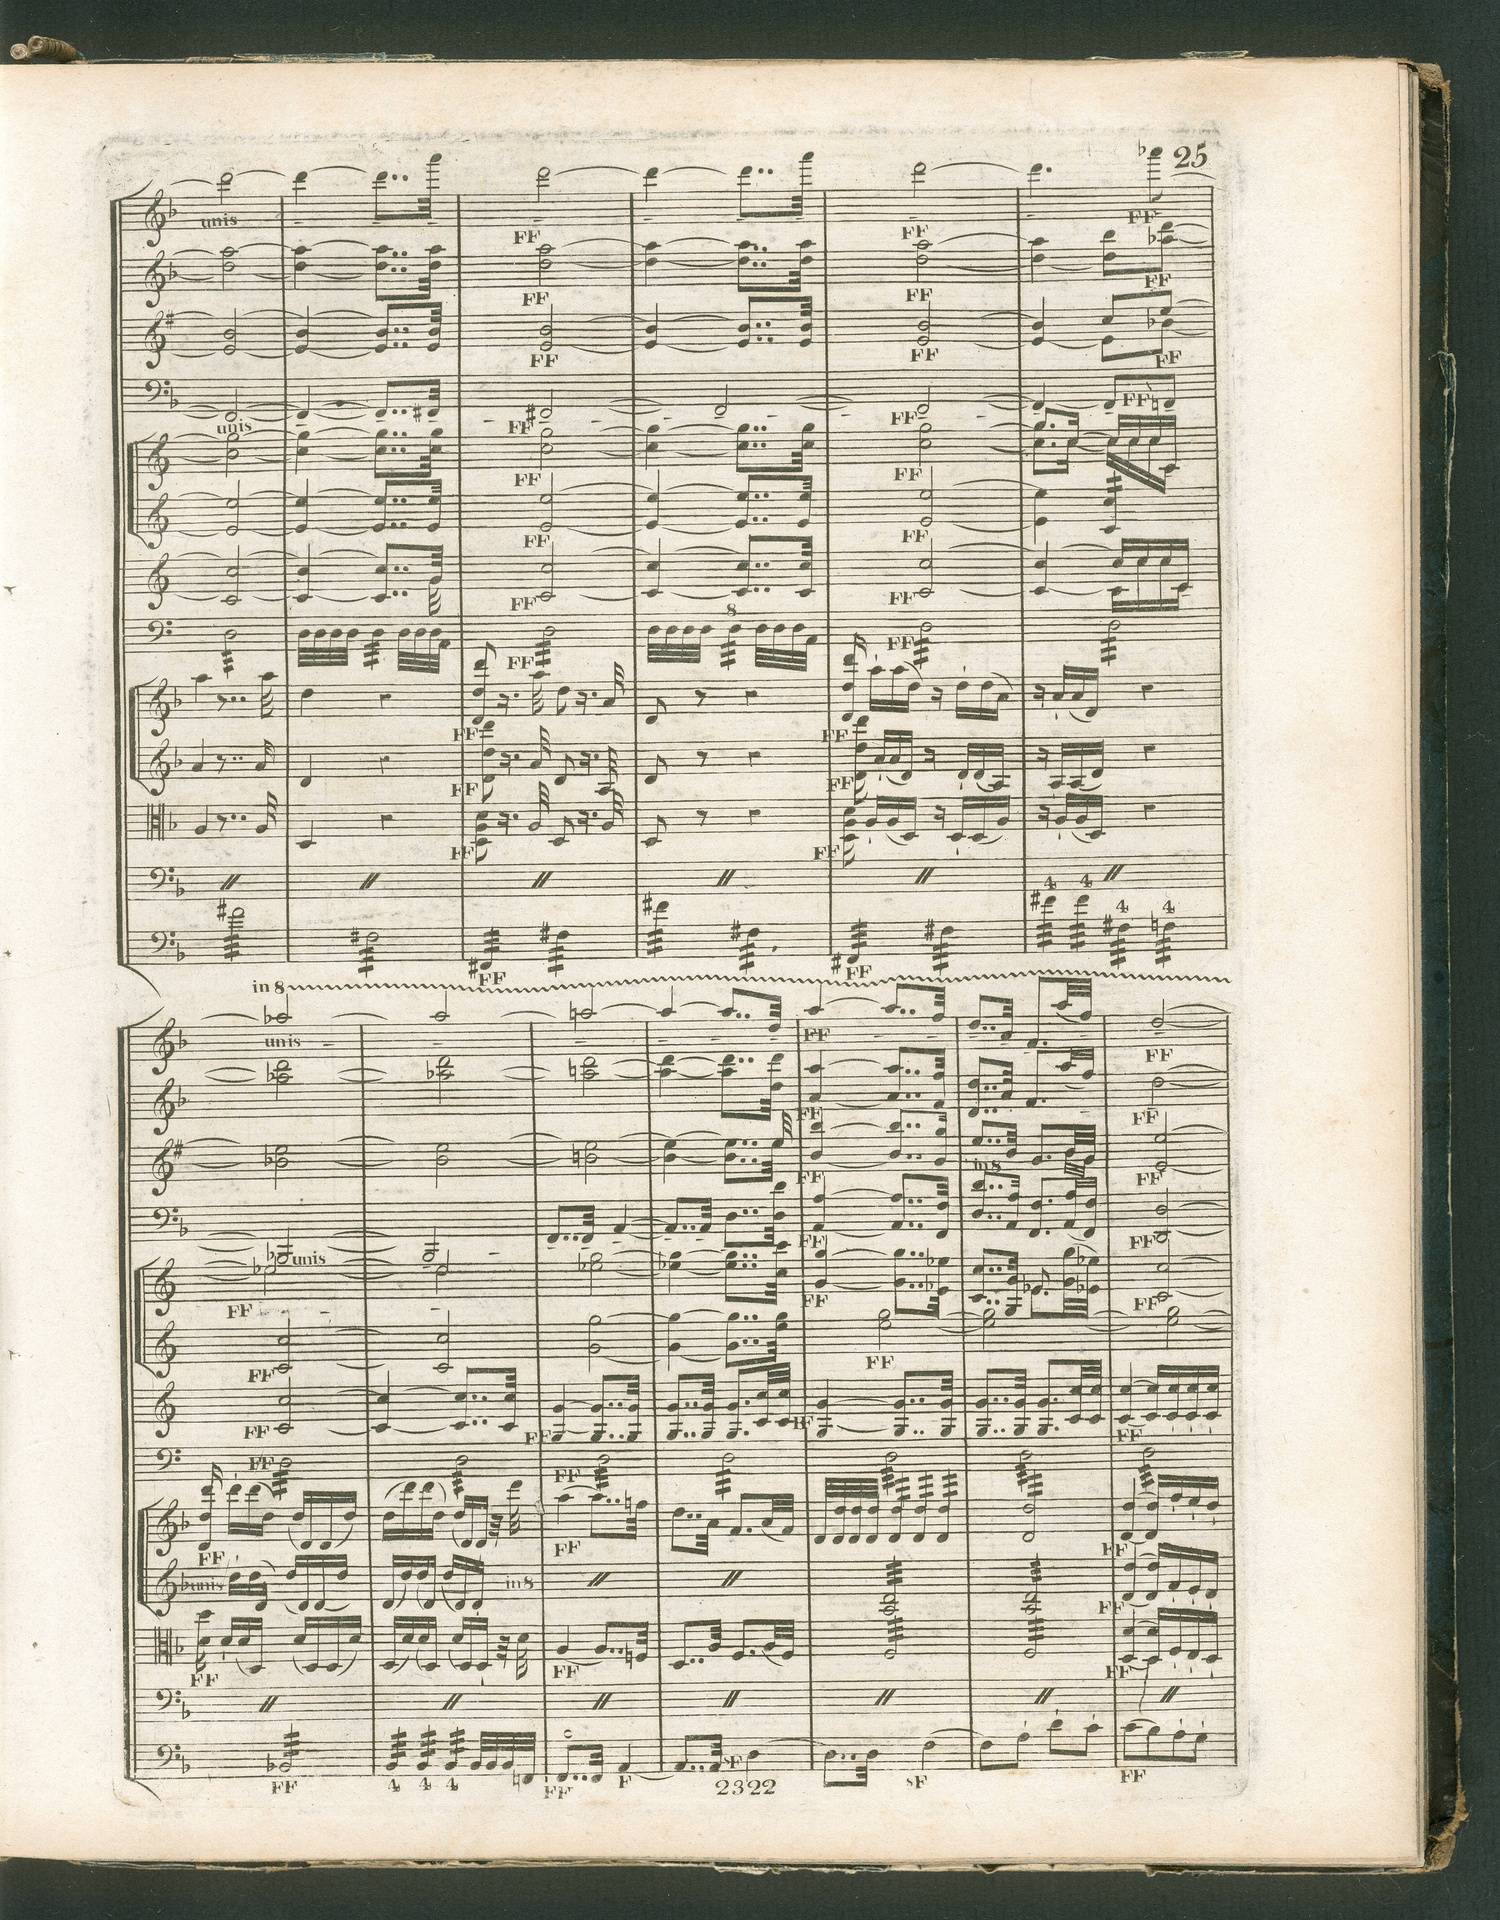 25
unis
FF FF FF
FF FF FF
FF FF FF
FF FF FF
unis
FF FF
FF FF
FF FF
8
FF FF
FF FF
FF FF
FF FF
4 4
4 4
FF FF
in 8
unis FF FF
FF FF
FF FF
in 8
FF FF
unis
FF FF FF
FF FF
FF FF FF FF
FF FF
FF FF FF
unis in 8
FF
FF FF FF
FF 4 4 4 FF F sF sF FF
2322